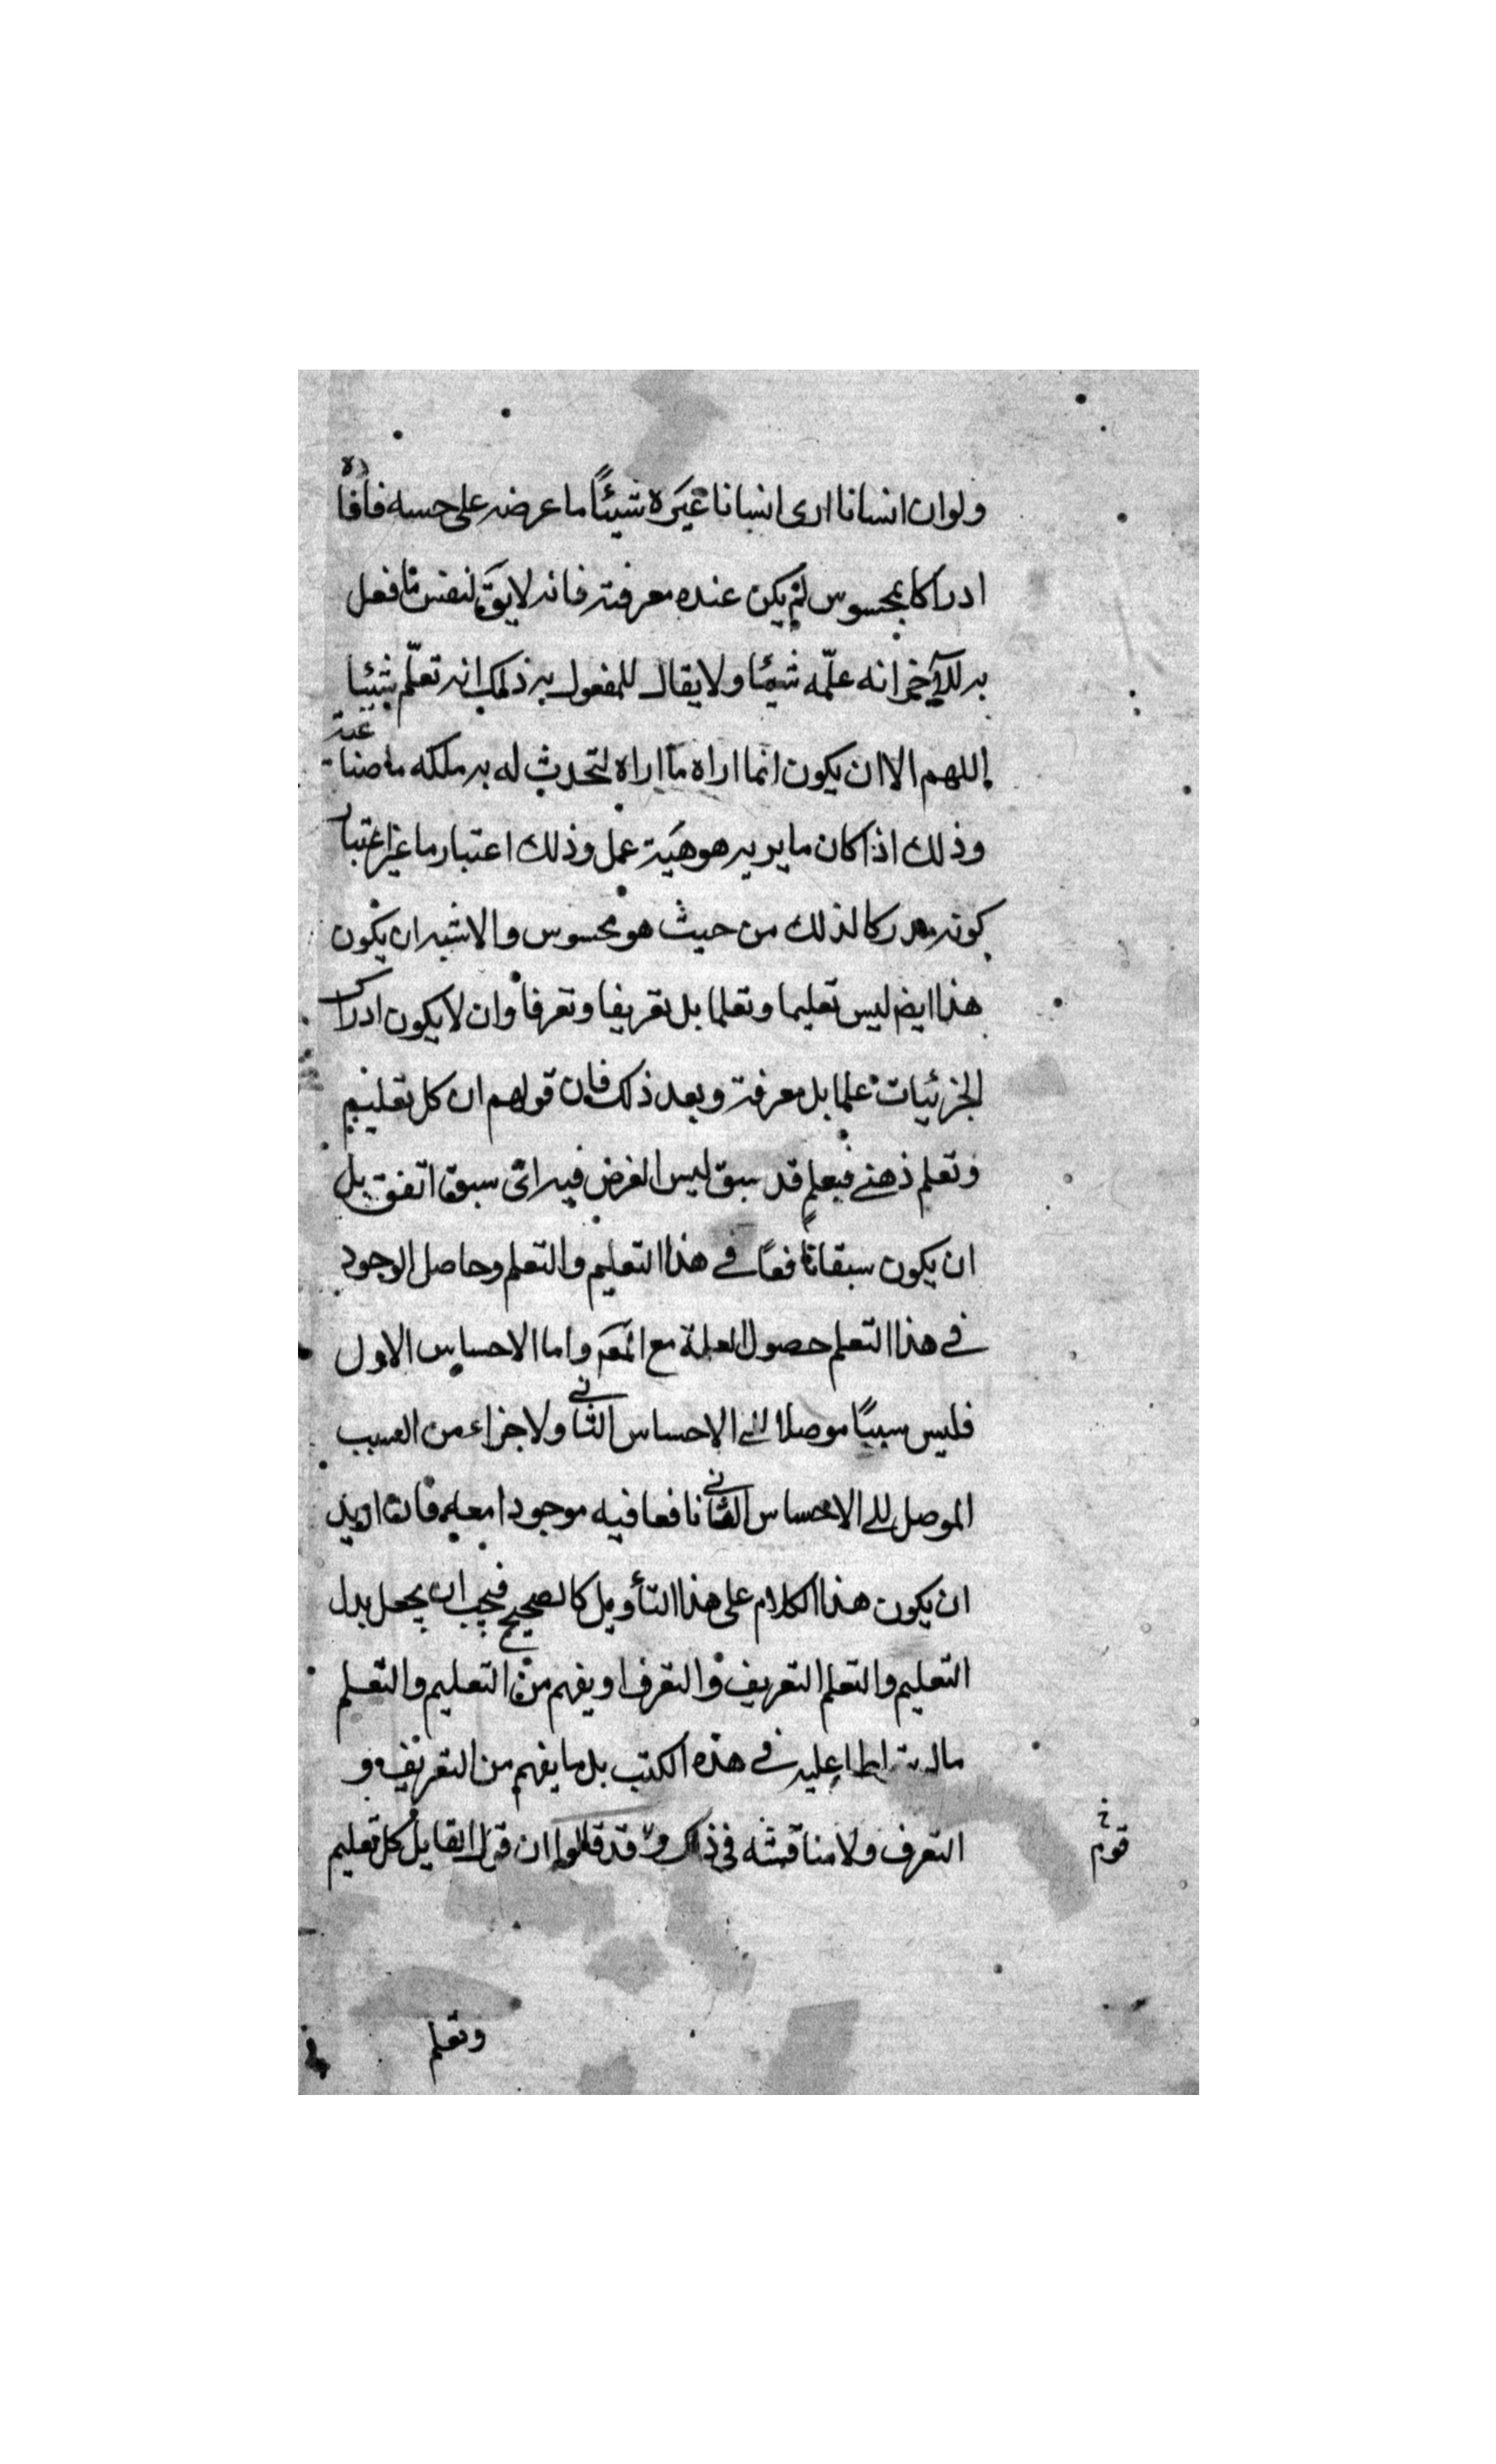 ولو ان انسانا ارى انسانا غيره شيئًا ما عرضه على حسه فافاده
ادراكا بمحسوس لم يكن عنده معرفته فانه لا يقَ لنفس ما فعل
به للآخر انه علّمه شيئا ولا يقال للمفعول به ذلك انه تعلّم شيئا
اللهم الا ان يكون انما اراه ما اراه لتحدث له به ملكه ما صناعية
وذلك اذا كان ما يريه هو هيئة عمل وذلك اعتبار ما غير اعتبار
كونه مدركا لذلك من حيث هو محسوس والاشبه ان يكون
هذا ايضم ليس تعليما وتعلما بل تعريفا وتعرفا وان لا يكون ادراك
الجزئيات علما بل معرفة وبعد ذلك فان قولهم ان كل تعليم
وتعلم ذهنے فبعلم قد سبق ليس الغرض فيه اى سبق اتفق بل
ان يكون سبقا نافعًا فے هذا التعليم والتعلم وحاصل الوجود
فے هذا التعلم حصول العلة مع المعَم واما الاحساس الاول
فليس سببًا موصلا الے الاحساس الثانے ولا جزاء من السبب
الموصل الے الاحساس الثانے نافعا فيه موجودا معه فان اريد
ان يكون هذا الكلام على هذا التأويل كالصحيح فيجب ان يجعل بدل
التعليم والتعلم التعريف والتعرف او يفهم من التعليم والتعلم
عليه فے هذه الكتب بل ما يفهم من التعريف و
التعرف ولا مناقشه فى ذلك وقد قالوا ان قول القايل كل تعليم
قوم خ
وتعلم